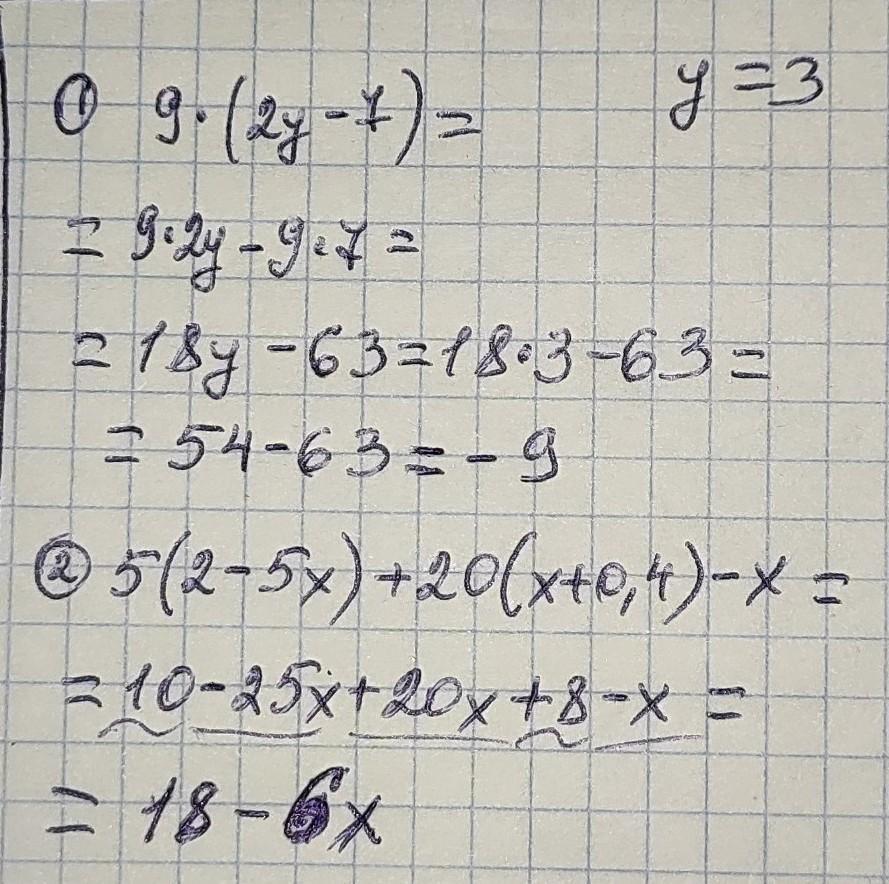 ① 9·(2y-7)= y=3
= 9·2y-9·7=
= 18y-63=18·3-63=
= 54-63=-9
② 5(2-5x)+20(x+0,4)-x=
= 10-25x+20x+8-x=
= 18-6x